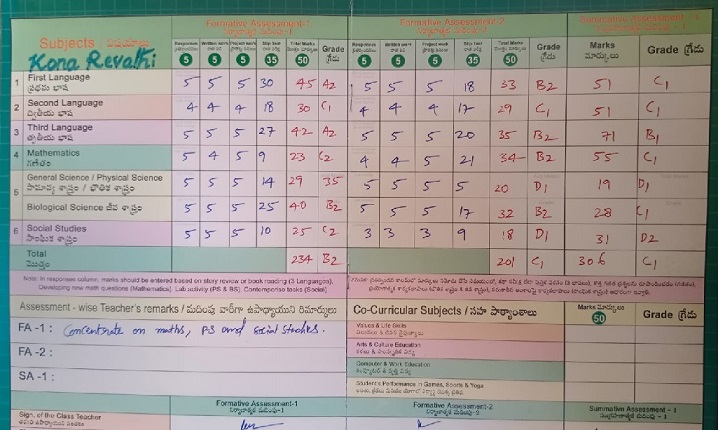 Formative Assessment-1 Formative Assessment-2 Summative Assessment - 1
Subjects / విషయాలు Responses Written work Project work Slip Test Total Marks Grade గ్రేడు Responses Written work Project work Slip Test Total Marks Grade గ్రేడు Marks మార్కులు Grade గ్రేడు
Kona Revathi 5 5 5 35 50 5 5 5 35 50
1 First Language 5 5 5 30 45 A2 5 5 5 18 33 B2 51 C1
ప్రథమ భాష
2 Second Language 4 4 4 18 30 C1 4 4 4 17 29 C1 51 C1
ద్వితీయ భాష
3 Third Language 5 5 5 27 42 A2 5 5 5 20 35 B2 71 B1
తృతీయ భాష
4 Mathematics 5 4 5 9 23 C2 4 4 5 21 34 B2 55 C1
గణితం
5 General Science / Physical Science 5 5 5 14 29 35 5 5 5 5 20 D1 19 D1
సామాన్య శాస్త్రం / భౌతిక శాస్త్రం
Biological Science జీవ శాస్త్రం 5 5 5 25 40 B2 5 5 5 17 32 B2 28 C1
6 Social Studies 5 5 5 10 25 C2 3 3 3 9 18 D1 31 D2
సాంఘిక శాస్త్రం
Total 234 B2 201 C1 306 C1
మొత్తం
Note: In responses column, marks should be entered based on story review or book reading (3 Languages),
Developing new math questions (Mathematics), Lab activity (PS & BS), Contemporise tasks (Social)
Assessment - wise Teacher's remarks / మదింపు వారీగా ఉపాధ్యాయుని రిమార్కులు Co-Curricular Subjects / సహ పాఠ్యాంశాలు Marks మార్కులు 50 Grade గ్రేడు
FA -1 : Concentrate on maths, PS and Social Studies. Values & Life Skills
Arts & Culture Education
FA -2 :
Computer & Work Education
SA -1 :
Student's Performance in Games, Sports & Yoga
Formative Assessment-1 Formative Assessment-2 Summative Assessment - 1
Sign. of the Class Teacher